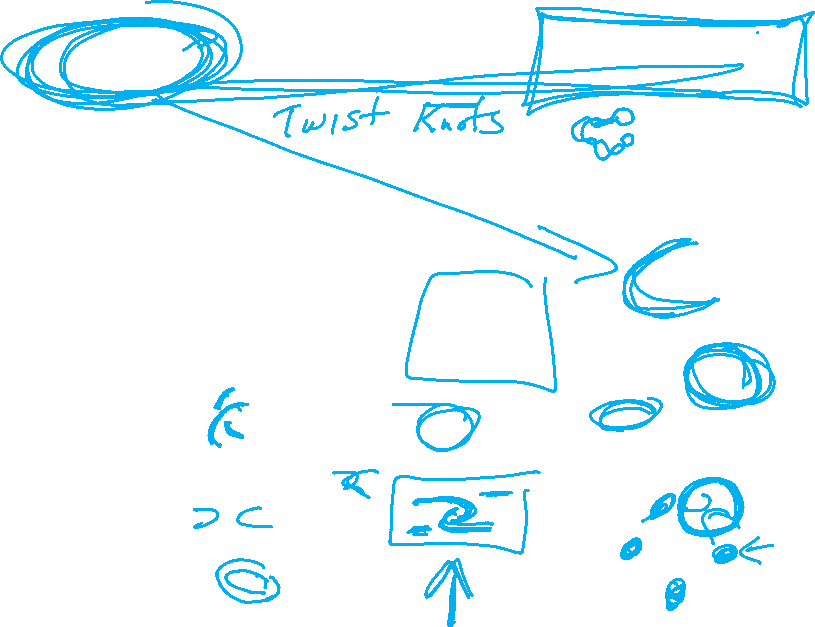 Twist Knots